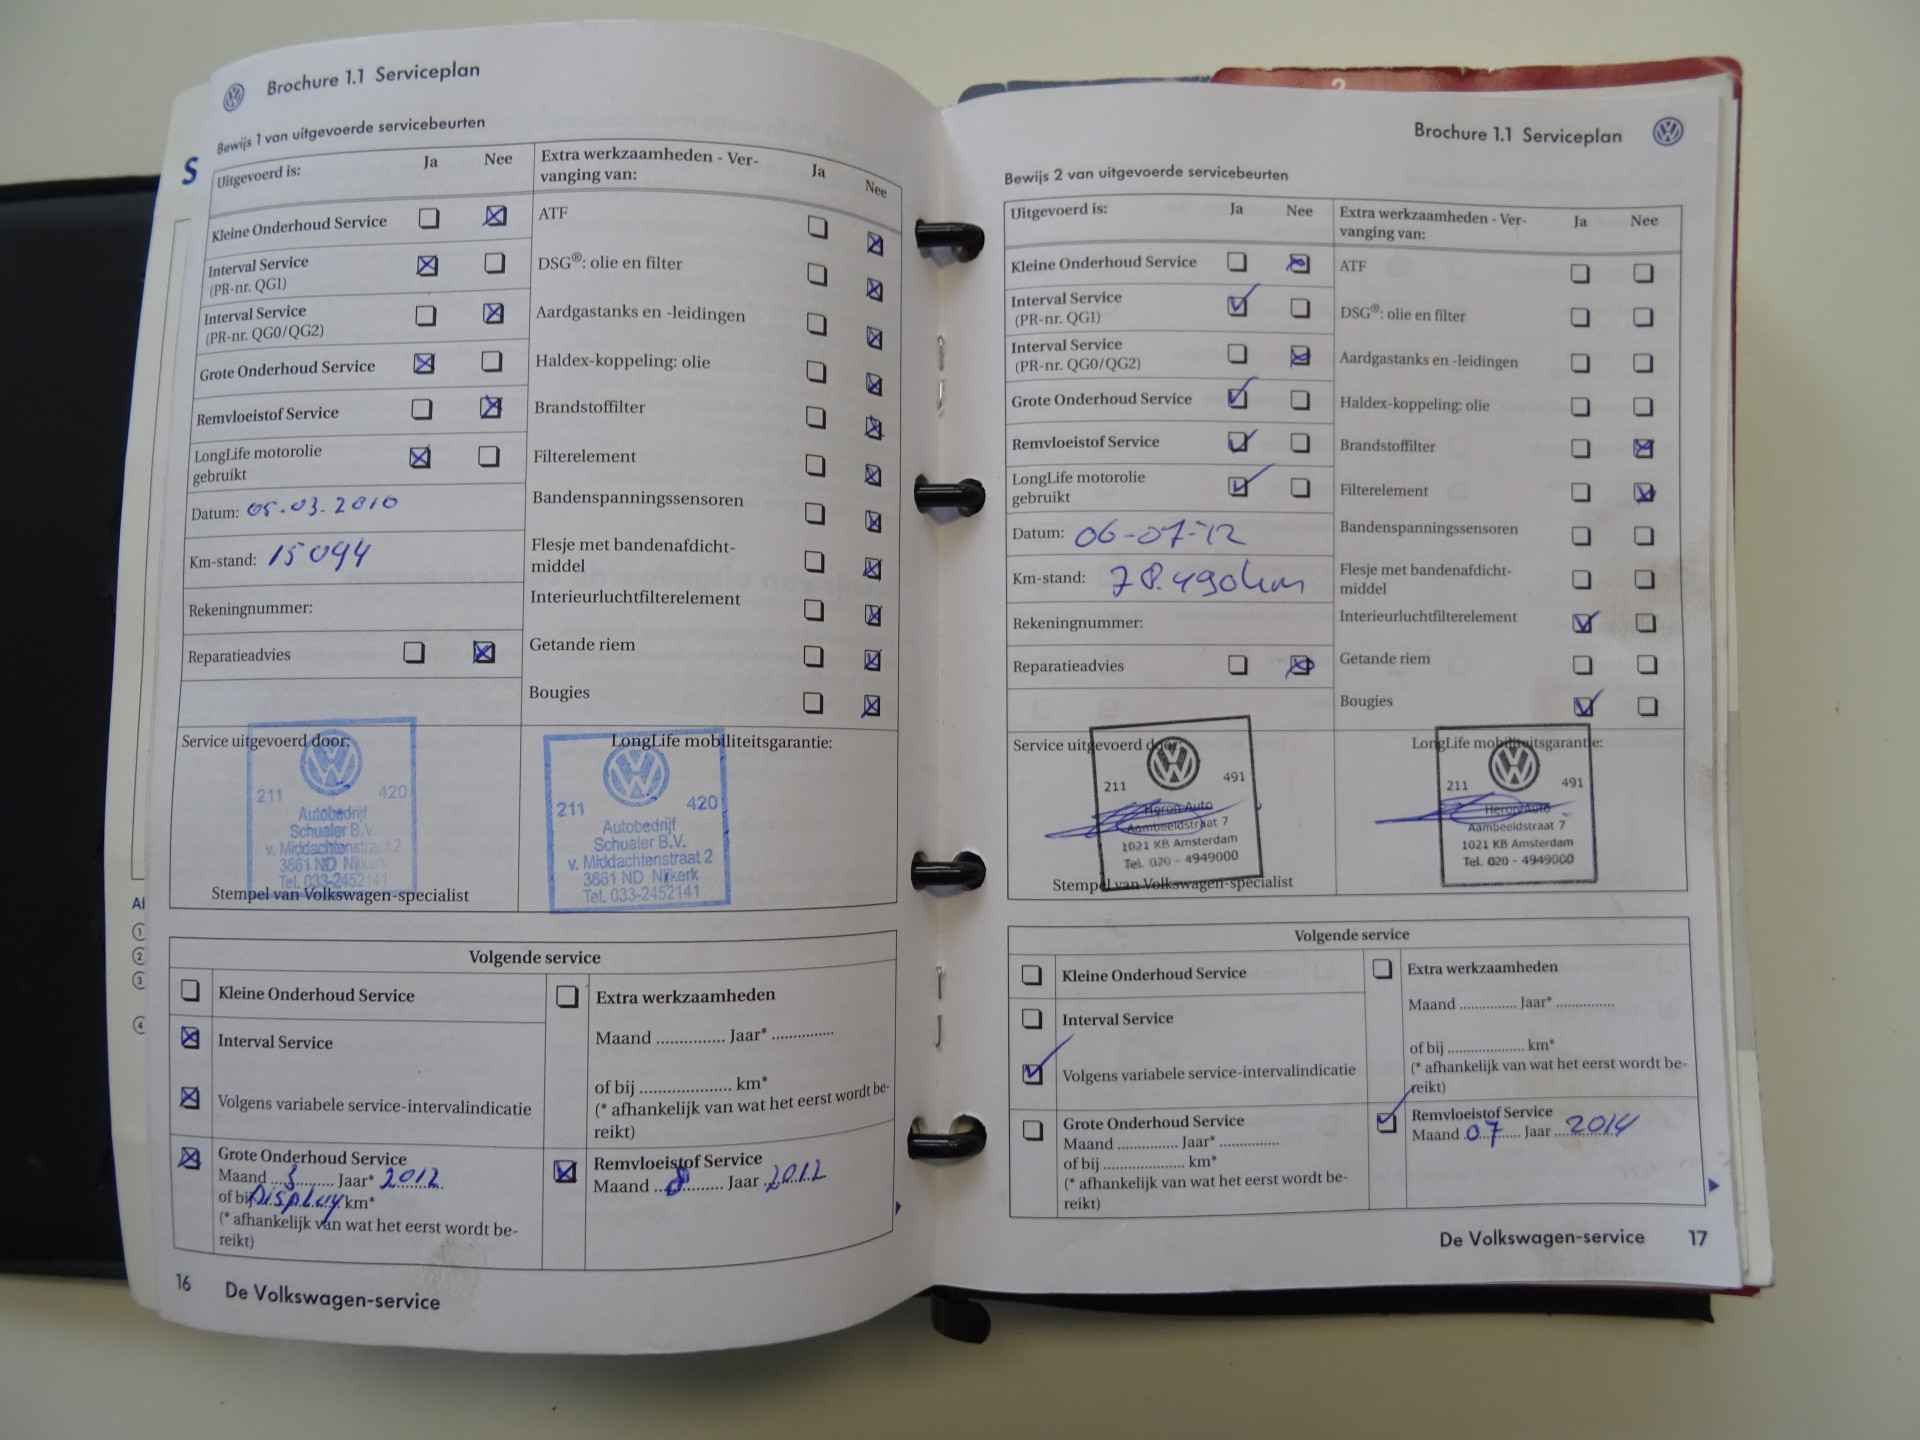 Brochure 1.1 Serviceplan
Bewijs 1 van uitgevoerde servicebeurten
S
Uitgevoerd is: Ja Nee
Kleine Onderhoud Service
Interval Service
(PR-nr. QG1)
Interval Service
(PR-nr. QG0/QG2)
Grote Onderhoud Service
Remvloeistof Service
LongLife motorolie
gebruikt
Datum: 05.03.2010
Km-stand: 15094
Rekeningnummer:
Reparatieadvies
Extra werkzaamheden - Ver-
vanging van: Ja Nee
ATF
DSG®: olie en filter
Aardgastanks en -leidingen
Haldex-koppeling: olie
Brandstoffilter
Filterelement
Bandenspanningssensoren
Flesje met bandenafdicht-
middel
Interieurluchtfilterelement
Getande riem
Bougies
Service uitgevoerd door:
211 420
Autobedrijf
Schualer B.V.
v. Middachtenstraat 2
3861 ND Nijkerk
Tel. 033-2452141
Stempel van Volkswagen-specialist
LongLife mobiliteitsgarantie:
211 420
Autobedrijf
Schualer B.V.
v. Middachtenstraat 2
3861 ND Nijkerk
Tel. 033-2452141
Volgende service
Kleine Onderhoud Service
Interval Service
Volgens variabele service-intervalindicatie
Grote Onderhoud Service
Maand 3 Jaar* 2012
of bij Display km*
(* afhankelijk van wat het eerst wordt be-
reikt)
Extra werkzaamheden
Maand ............... Jaar* ..............
of bij .................... km*
(* afhankelijk van wat het eerst wordt be-
reikt)
Remvloeistof Service
Maand 8 Jaar 2012
16 De Volkswagen-service
Al
1
2
3
4
2
Brochure 1.1 Serviceplan
Bewijs 2 van uitgevoerde servicebeurten
Uitgevoerd is: Ja Nee
Kleine Onderhoud Service
Interval Service
(PR-nr. QG1)
Interval Service
(PR-nr. QG0/QG2)
Grote Onderhoud Service
Remvloeistof Service
LongLife motorolie
gebruikt
Datum: 06-07-12
Km-stand: 78.490km
Rekeningnummer:
Reparatieadvies
Extra werkzaamheden - Ver-
vanging van: Ja Nee
ATF
DSG®: olie en filter
Aardgastanks en -leidingen
Haldex-koppeling: olie
Brandstoffilter
Filterelement
Bandenspanningssensoren
Flesje met bandenafdicht-
middel
Interieurluchtfilterelement
Getande riem
Bougies
Service uitgevoerd door:
211 491
Heron Auto
Aambeeldstraat 7
1021 KB Amsterdam
Tel. 020 - 4949000
Stempel van Volkswagen-specialist
LongLife mobiliteitsgarantie:
211 491
Heron Auto
Aambeeldstraat 7
1021 KB Amsterdam
Tel. 020 - 4949000
Volgende service
Kleine Onderhoud Service
Interval Service
Volgens variabele service-intervalindicatie
Grote Onderhoud Service
Maand .............. Jaar* ..............
of bij .................... km*
(* afhankelijk van wat het eerst wordt be-
reikt)
Extra werkzaamheden
Maand .............. Jaar* ..............
of bij .................... km*
(* afhankelijk van wat het eerst wordt be-
reikt)
Remvloeistof Service
Maand 07 Jaar 2014
De Volkswagen-service 17